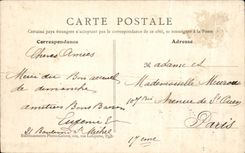 CARTE POSTALE
Certains pays étrangers n'acceptent pas la correspondance de ce côté, se renseigner à la Poste
Correspondance
Adresse
Chères Amies
Merci du Bon accueil
de dimanche
amitiés Bons Baisers
Eugénie
Boulevard St Michel
Madame et
Mademoiselle
Avenue de St Ouen
Paris
17eme